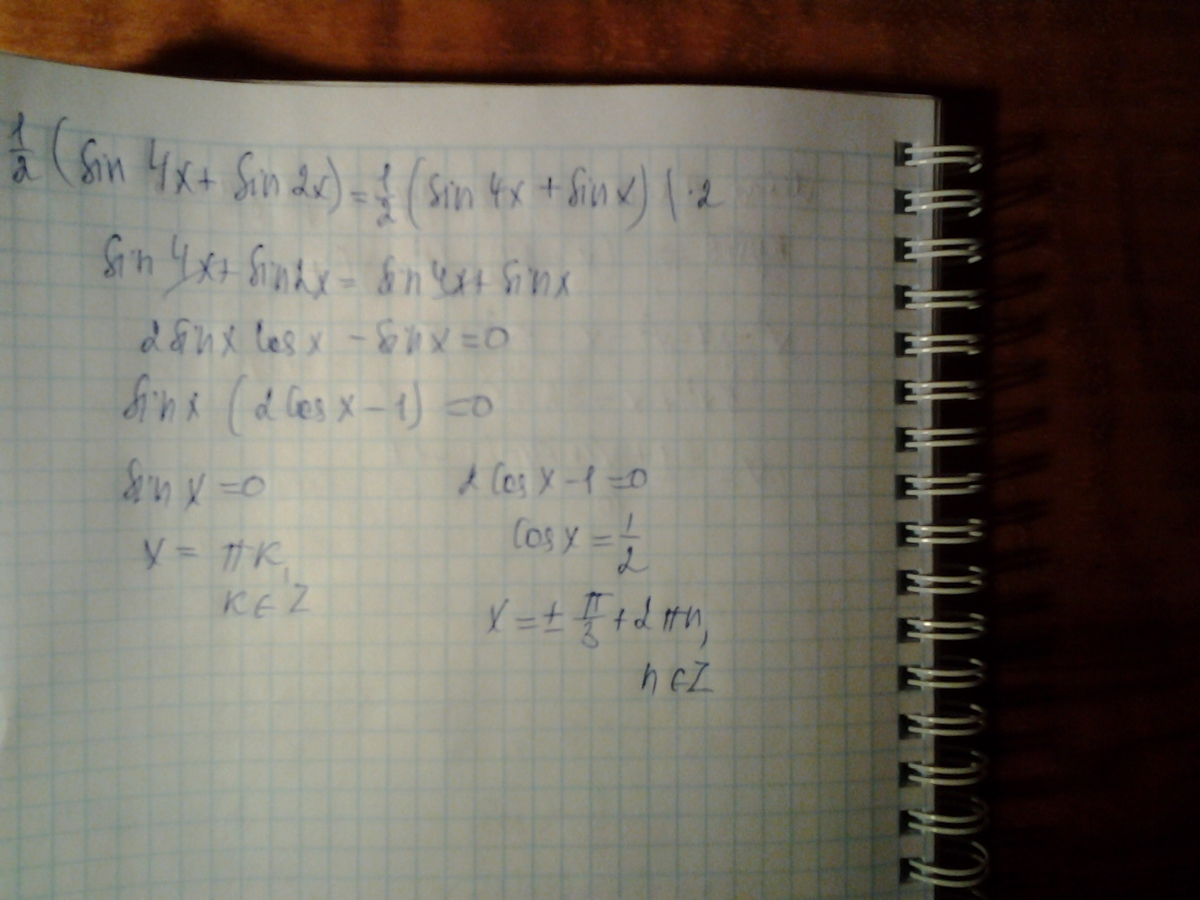 1/2 (sin 4x + sin 2x) = 1/2 (sin 4x + sin x) | · 2
sin 4x + sin 2x = sin 4x + sin x
2 sin x cos x - sin x = 0
sin x (2 cos x - 1) = 0
sin x = 0
x = πk,
k ∈ Z
2 cos x - 1 = 0
cos x = 1/2
x = ± π/3 + 2πn,
n ∈ Z